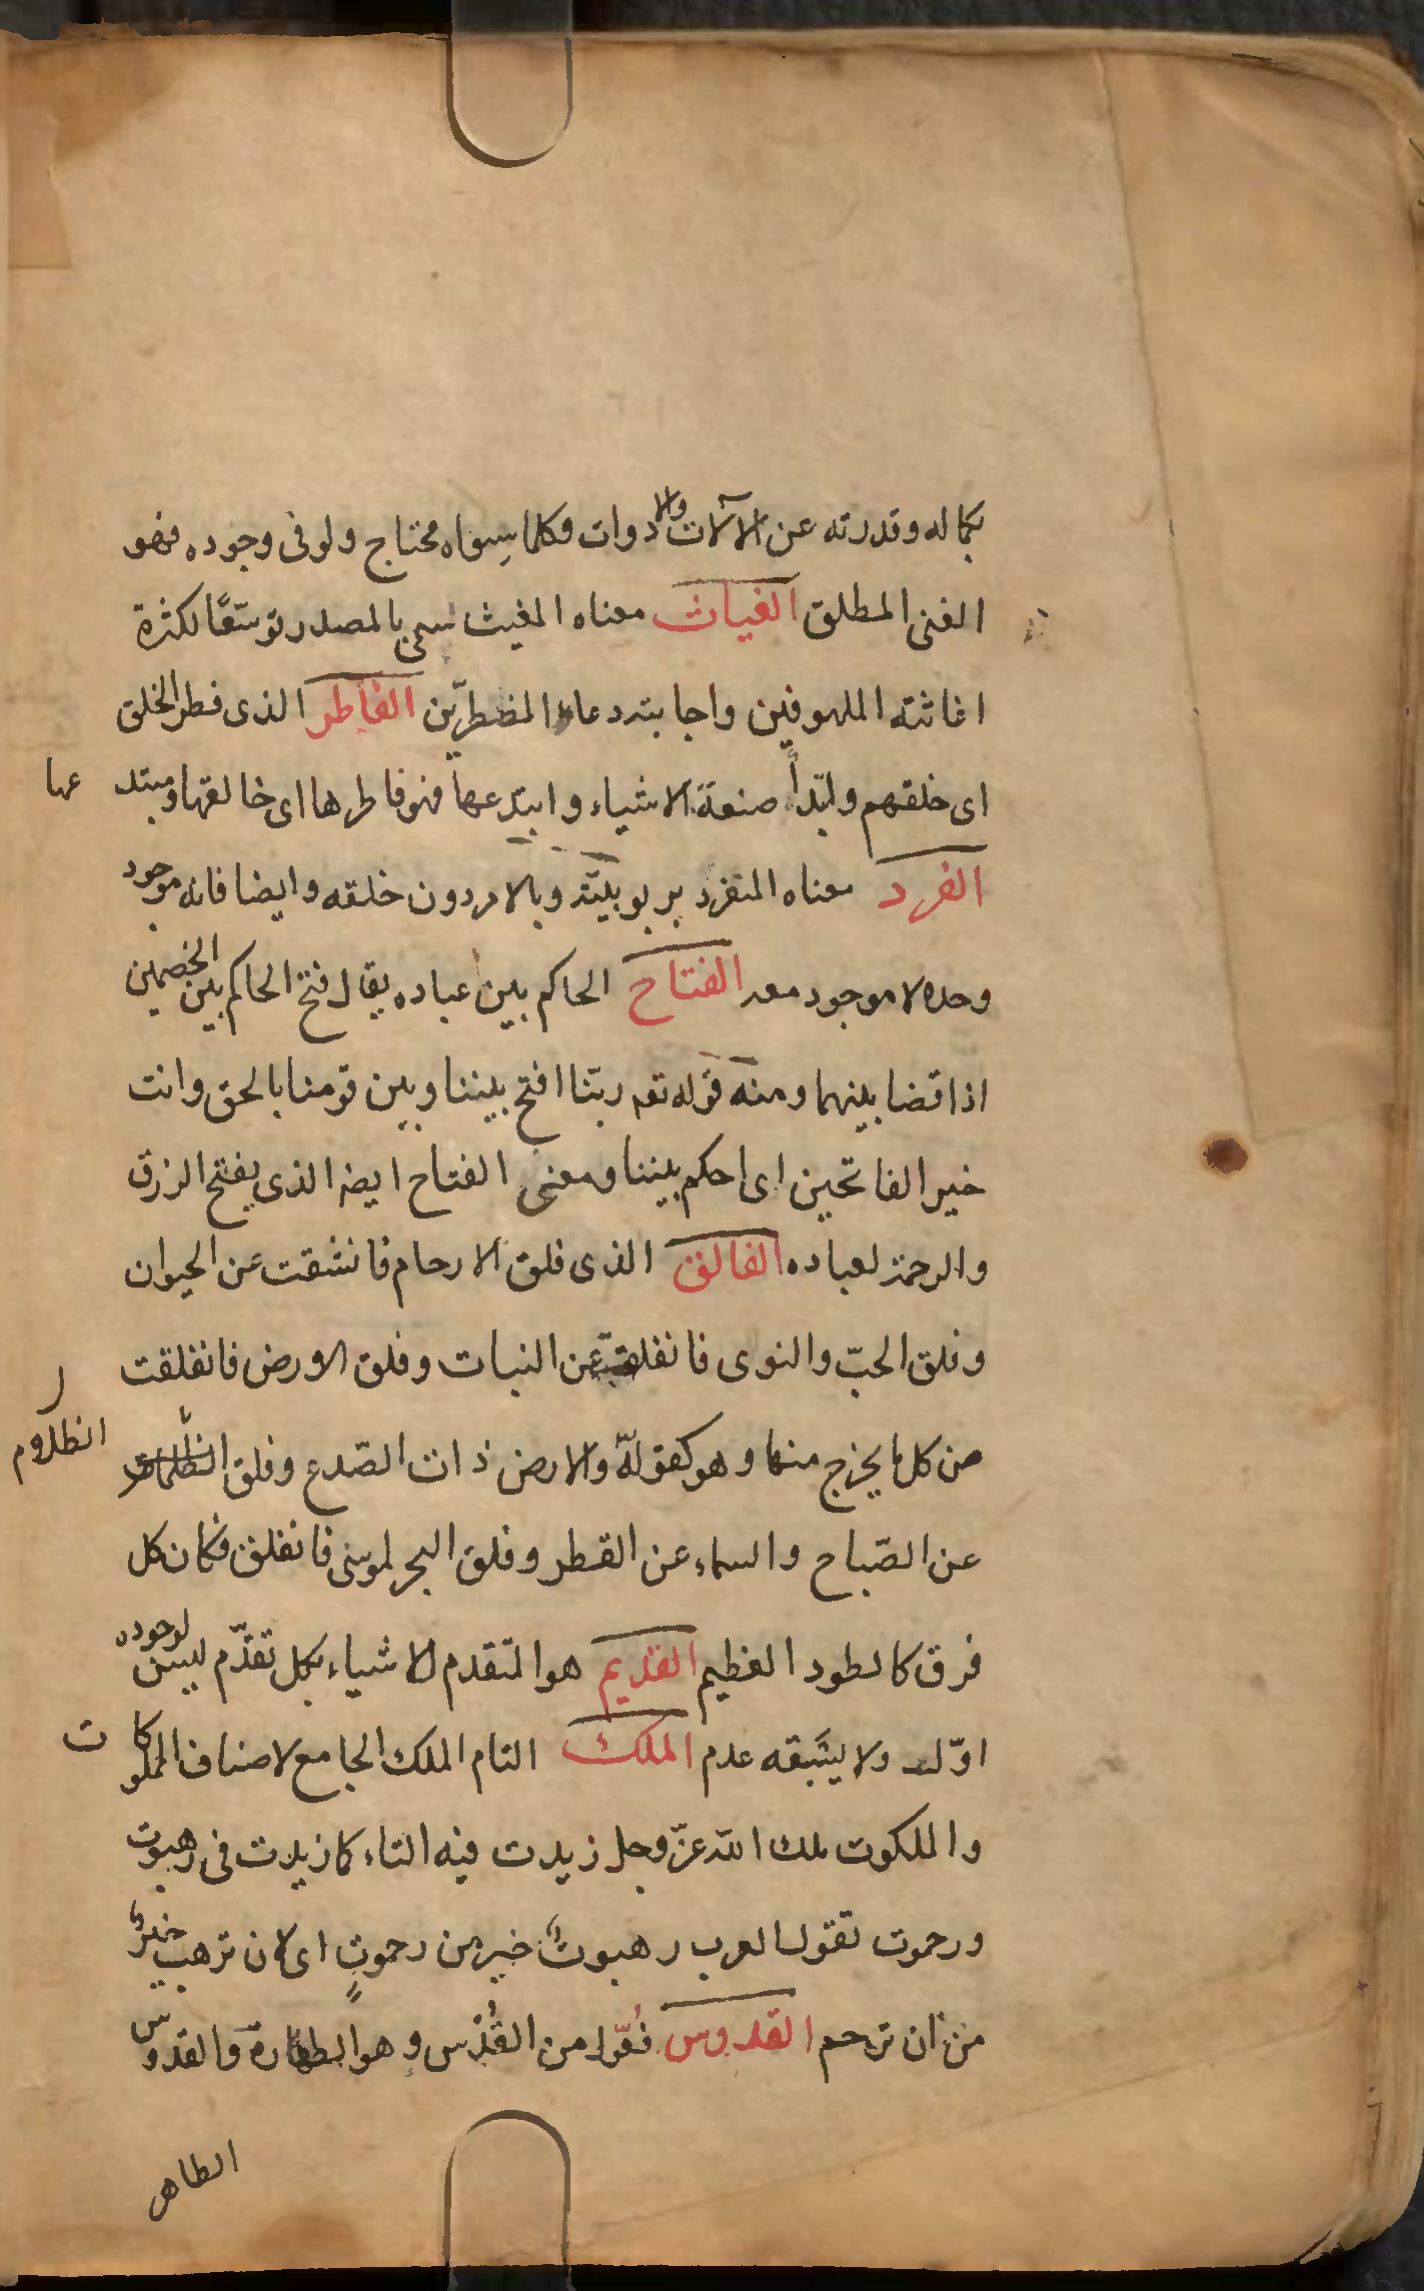 بكماله وقدرته عن الآلات والادوات وكلما سواه محتاج ولو فى وجوده فهو
الغنى المطلق الغياث معناه المغيث سمى بالمصدر توسّعًا لكثرة
اغاثته الملهوفين واجابته دعاء المضطرّين الفاطر الذى فطر الخلق
اى خلقهم وابتدأ صنعة الاشياء وابتدعها فهو فاطرها اى خالقها ومبتد عها
الفرد معناه المتفرد بربوبيّته وبالامر دون خلقه وايضا فانه موجود
وحده لا موجود معه الفتاح الحاكم بين عباده يقال فتح الحاكم بين الخصمين
اذا قضا بينهما ومنه قوله تعه ربّنا افتح بيننا وبين قومنا بالحق وانت
خير الفاتحين اى احكم بيننا ومعنى الفتاح ايضه الذى يفتح الرزق
والرحمة لعباده الفالق الذى فلق الارحام فانشقت عن الحيوان
وفلق الحبّ والنوى فانفلقت عن النبات وفلق الارض فانفلقت
عن كل ما يخرج منها وهو كقوله والارض ذات الصّدع وفلق الظلام
عن الصّباح والسماء عن القطر وفلق البحر لموسى فانفلق فكان كل
فرق كالطود العظيم القديم هو المتقدم للاشياء بكل تقدّم ليس لوجوده
اوّل ولا يسبقه عدم الملك التام الملك الجامع لاصناف المملوكات
والملكوت ملك الله عزّ وجل زيدت فيه التاء كما زيدت فى رهبوت
ورحموت تقول العرب رهبوتٌ خير من رحموتٍ اى لان ترهب خيرٌ
من ان ترحم القدوس فُعّول من القُدْس وهو الطهارة والقدوس
الطاهر